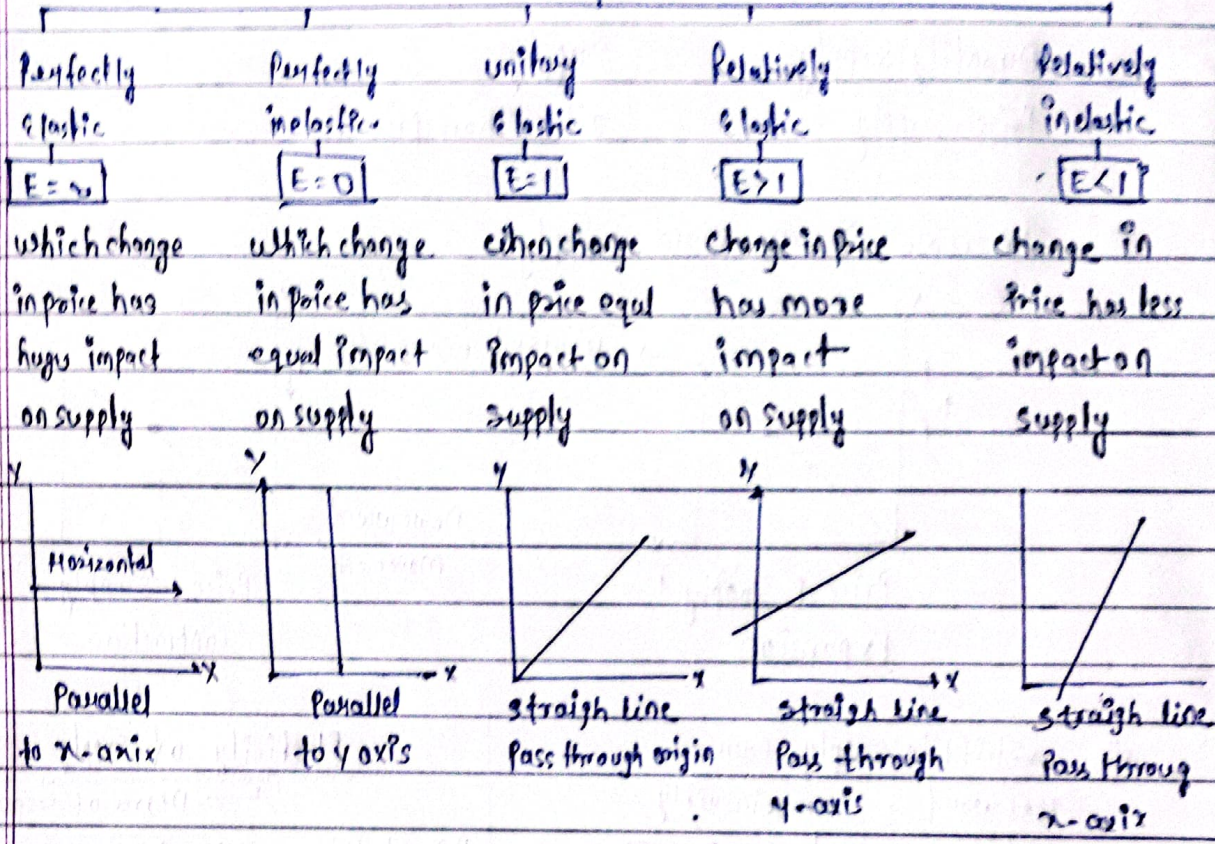 Perfectly
Elastic
E = ∞
which change
in price has
hugu impact
on supply
Y
Horizontal
X
Parallel
to x-axix
Perfectly
inelastic
E = 0
which change
in price has
equal impact
on supply
Y
X
Parallel
to y axis
unitary
Elastic
E = 1
when change
in price equl
impact on
supply
Y
X
straigh line
Pass through origin
Relatively
Elastic
E > 1
change in price
has more
impact
on supply
Y
X
straigh line
Pass through
y-axis
Relatively
inelastic
E < 1
change in
Price has less
impact on
supply
straigh line
Pass throug
x-axix